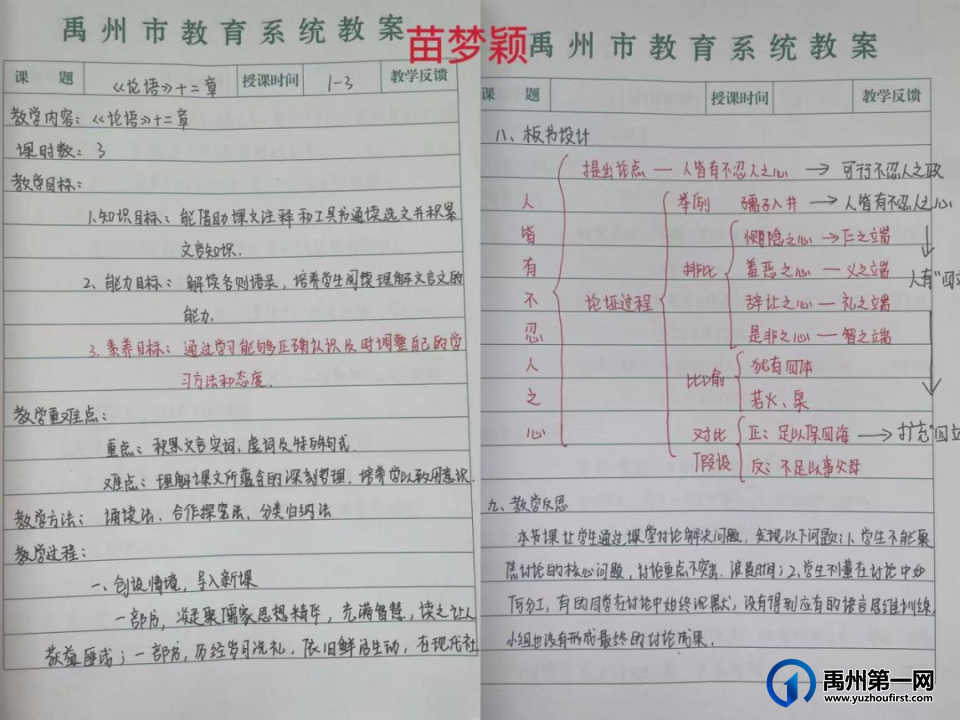 禹州市教育系统教案
苗梦颖
课题 《论语》十二章 授课时间 1-3 教学反馈
教学内容：《论语》十二章
课时数：3
教学目标：
1.知识目标：能借助课文注释和工具书通读选文并积累
文言知识.
2、能力目标：解读各则语录，培养学生阅读理解文言文的
能力.
3.素养目标：通过学习能够正确认识及时调整自己的学
习方法和态度.
教学重难点：
重点：积累文言实词，虚词及特殊句式.
难点：理解课文所蕴含的深刻哲理，培养学以致用意识.
教学方法：诵读法，合作探究法，分类归纳法
教学过程：
一、创设情境，导入新课
一部书，凝聚儒家思想精华，充满智慧，读之让人
获益匪浅；一部书，历经岁月洗礼，依旧鲜活生动，在现代社
禹州市教育系统教案
课题 授课时间 教学反馈
八、板书设计
人皆有不忍人之心
提出论点 — 人皆有不忍人之心 → 可行不忍人之政
论证过程
举例 孺子入井 → 人皆有不忍人之心
排比
恻隐之心 → 仁之端
羞恶之心 — 义之端
人有"四
辞让之心 — 礼之端
是非之心 — 智之端
比喻
犹有四体
若火、泉
对比
假设
正：足以保四海 → 扩充"四
反：不足以事父母
九、教学反思
本节课让学生通过课堂讨论解决问题，发现以下问题：1、学生不能聚
焦讨论的核心问题，讨论重点不突出，浪费时间；2、学生不懂在讨论中如
何分工，有的同学在讨论中始终沉默，没有得到应有的语言思维训练，
小组也没有形成最终的讨论成果.
禹州第一网
www.yuzhoufirst.com